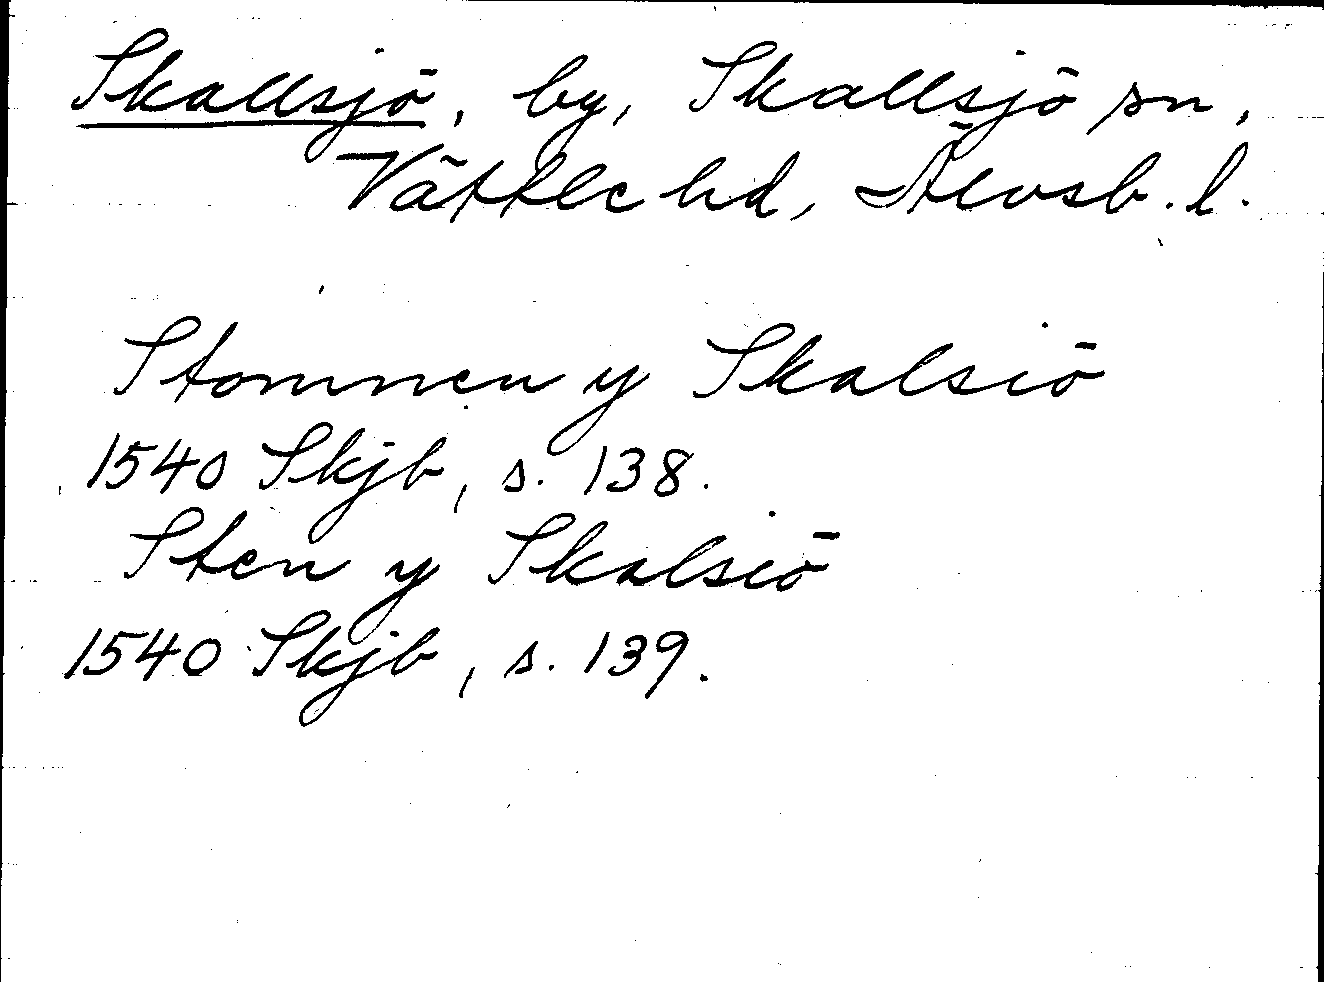 Skallsjö, by, Skallsjö sn,
Vättle hd, Älvsb. l.
Stommen y Skalsiö
1540 Skjb, s. 138.
Sten y Skalsiö
1540 Skjb, s. 139.